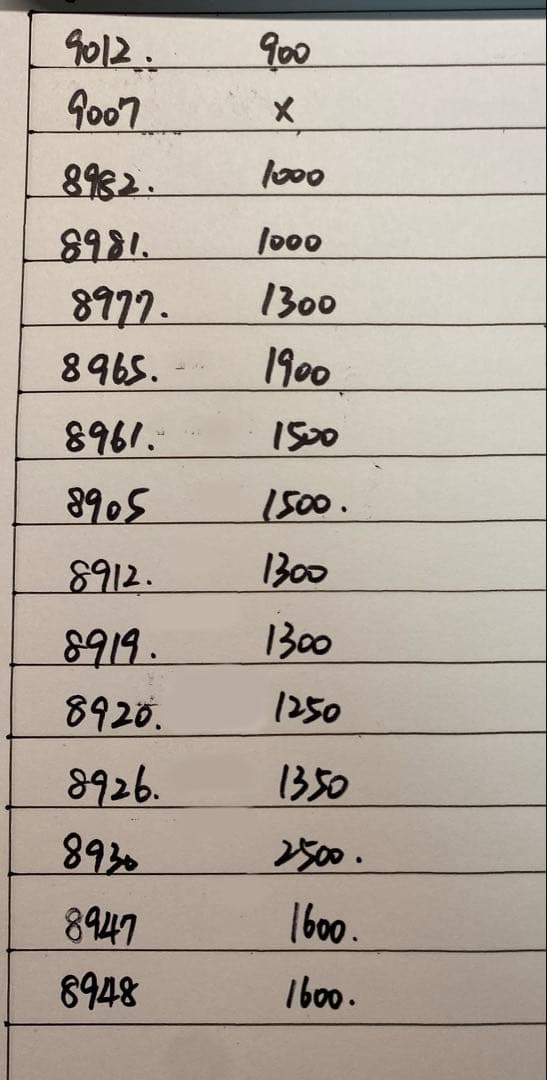 9012. 900
9007 x
8982. 1000
8981. 1000
8977. 1300
8965. 1900
8961. 1500
8905 1500.
8912. 1300
8919. 1300
8920. 1250
8926. 1350
8930 2500.
8947 1600.
8948 1600.